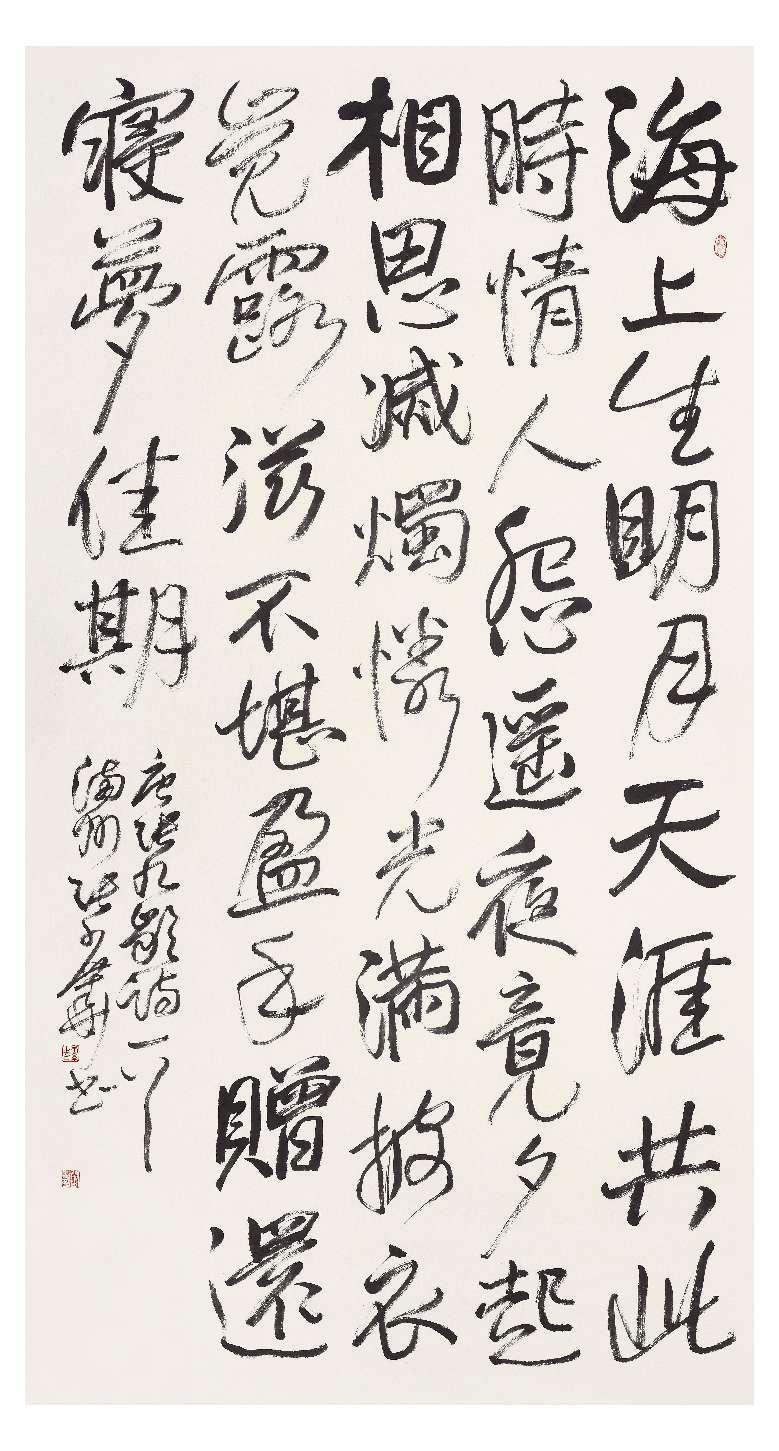 海上生明月天涯共此
時情人怨遥夜竟夕起
相思滅燭憐光滿披衣
覺露滋不堪盈手贈還
寢夢佳期
唐張九齡詩一首
張少華書